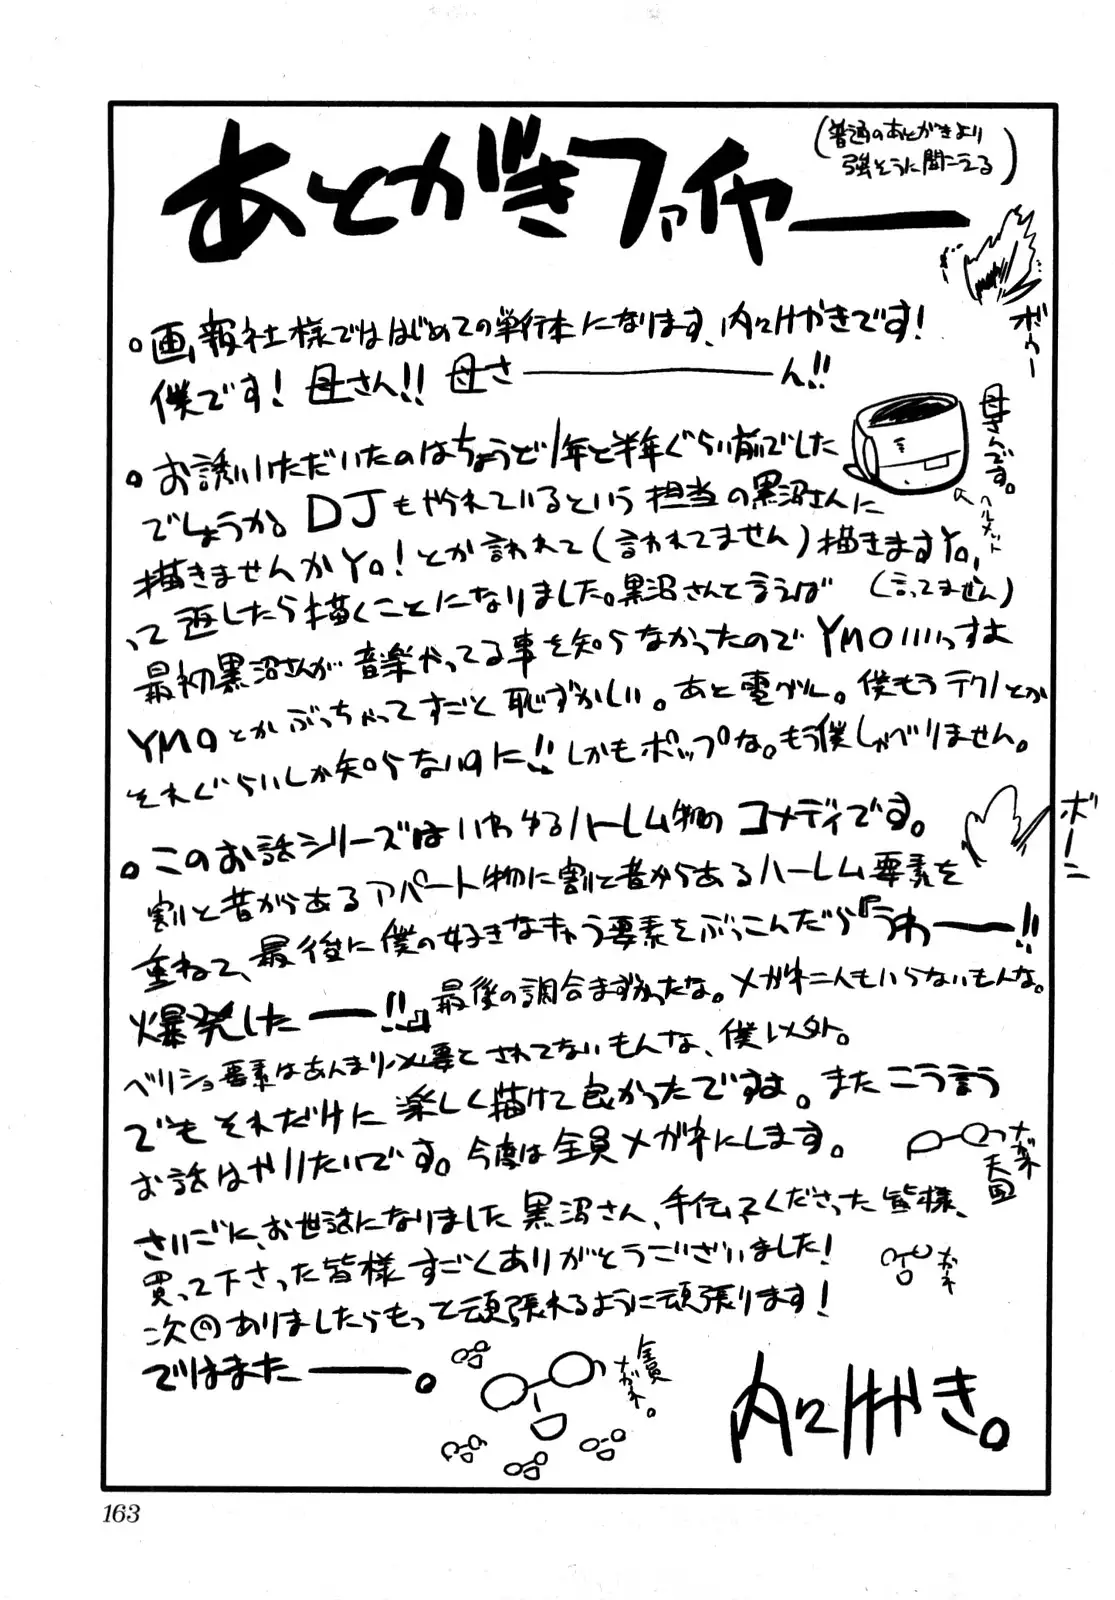 あとがきファイヤー
(普通のあとがきより
強そうに聞こえる)
ボウー
。画報社様でははじめての単行本になります、内々けやきです!
僕です! 母さん!! 母さ――――ん!!
母さんです。
ヘルメット
。お誘いいただいたのはちょうど1年と半年ぐらい前でした
でしょうか。DJもやられているという担当の黒沼さんに
描きませんかYo!とか言われて(言われてません)描きますYo,
って返したら描くことになりました。黒沼さんと言えば
(言ってません)
最初黒沼さんが音楽やってる事を知らなかったのでYMOいいっすよ
YMOとかぶっちゃってすごく恥ずかしい。あと電グル。僕もうテクノとか
それぐらいしか知らないのに!!しかもポップな。もう僕しゃべりません。
ボーン
。このお話シリーズはいわゆるハーレム物のコメディです。
割と昔からあるアパート物に割と昔からあるハーレム要素を
重ねて、最後に僕の好きなキョう要素をぶっこんだら『うわ――!!
爆発した――!!』最後の調合まずかったな。メガネ二人もいらないもんな。
ベリショ要素はあんまり必要とされてないもんな、僕以外。
でもそれだけに楽しく描けて良かったですよ。またこう言う
お話はやりたいです。今度は全員メガネにします。
メガネ
天国
さいごに、お世話になりました黒沼さん、手伝ってくださった皆様、
買って下さった皆様すごくありがとうございました!
次回ありましたらもって頑張れるように頑張ります!
ではまた――。
全員
メガネ。
内々けやき。
163